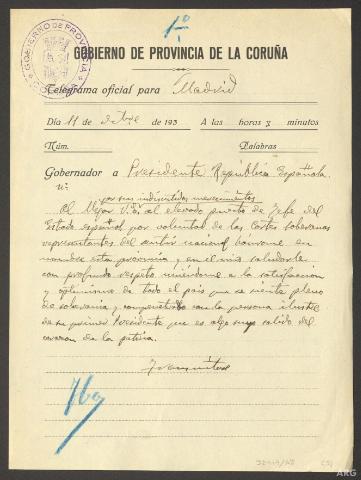 1º
GOBIERNO DE PROVINCIA
GOBIERNO DE PROVINCIA DE LA CORUÑA
Telegrama oficial para Madrid
Día 11 de Dbre de 193 A las horas y minutos
Núm. Palabras
Gobernador a Presidente República Española.
por sus indiscutidos merecimientos
Al llegar V.E. al elevado puesto de Jefe del
Estado español por voluntad de las Cortes soberanas
representantes del sentir nacional hónrome en
nombre esta provincia y en el mío saludarle
con profundo respeto uniéndome a la satisfacción
y optimismo de todo el país que se siente pleno
de soberanía y compenetrado con la persona ilustre
de su primer Presidente que es algo suyo salido del
corazón de la patria.
ARG